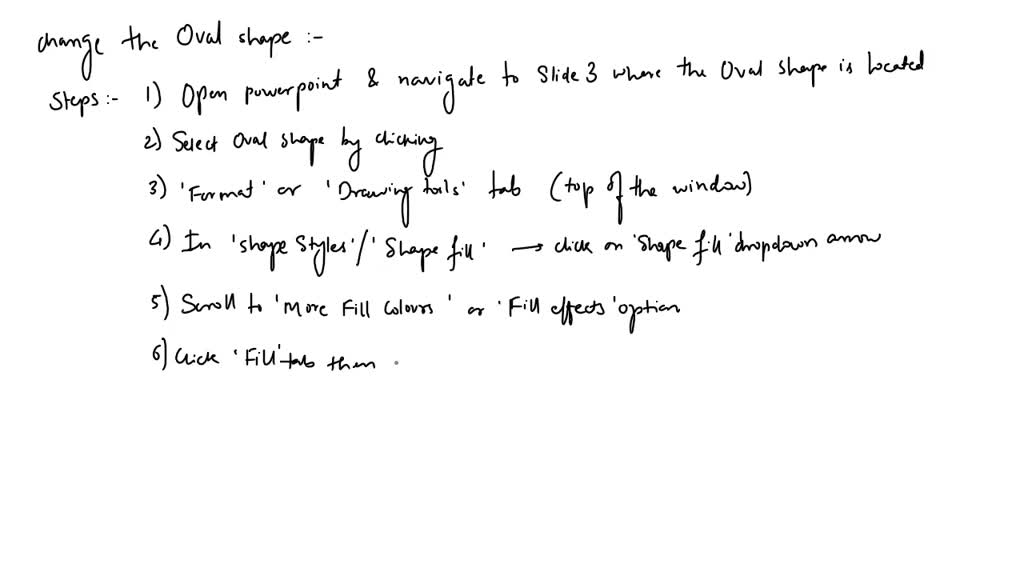 change the Oval shape :-
Steps :- 1) Open powerpoint & navigate to Slide 3 where the Oval shape is located
2) Select Oval shape by clicking
3) 'Format' or 'Drawing tools' tab (top of the window)
4) In 'shape Styles'/'Shape fill' → click on 'Shape fill' dropdown arrow
5) Scroll to 'More Fill Colours' or 'Fill effects' option
6) Click 'Fill' tab then .